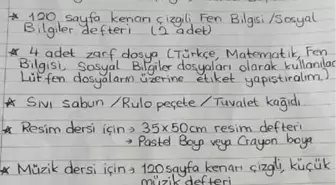 * 120 sayfa kenarı çizgili Fen Bilgisi /Sosyal
Bilgiler defteri (2 adet)
* 4 adet zarf dosya (Türkçe, Matematik, Fen
Bilgisi, Sosyal Bilgiler dosyaları olarak kullanılac
Lütfen dosyaların üzerine etiket yapıştıralım.)
* Sıvı sabun /Rulo peçete /Tuvalet kağıdı
* Resim dersi için → 35x50cm resim defteri
→ Pastel Boya veya Crayon boya
* Müzik dersi için → 120 sayfa kenarı çizgili, küçük
müzik defteri